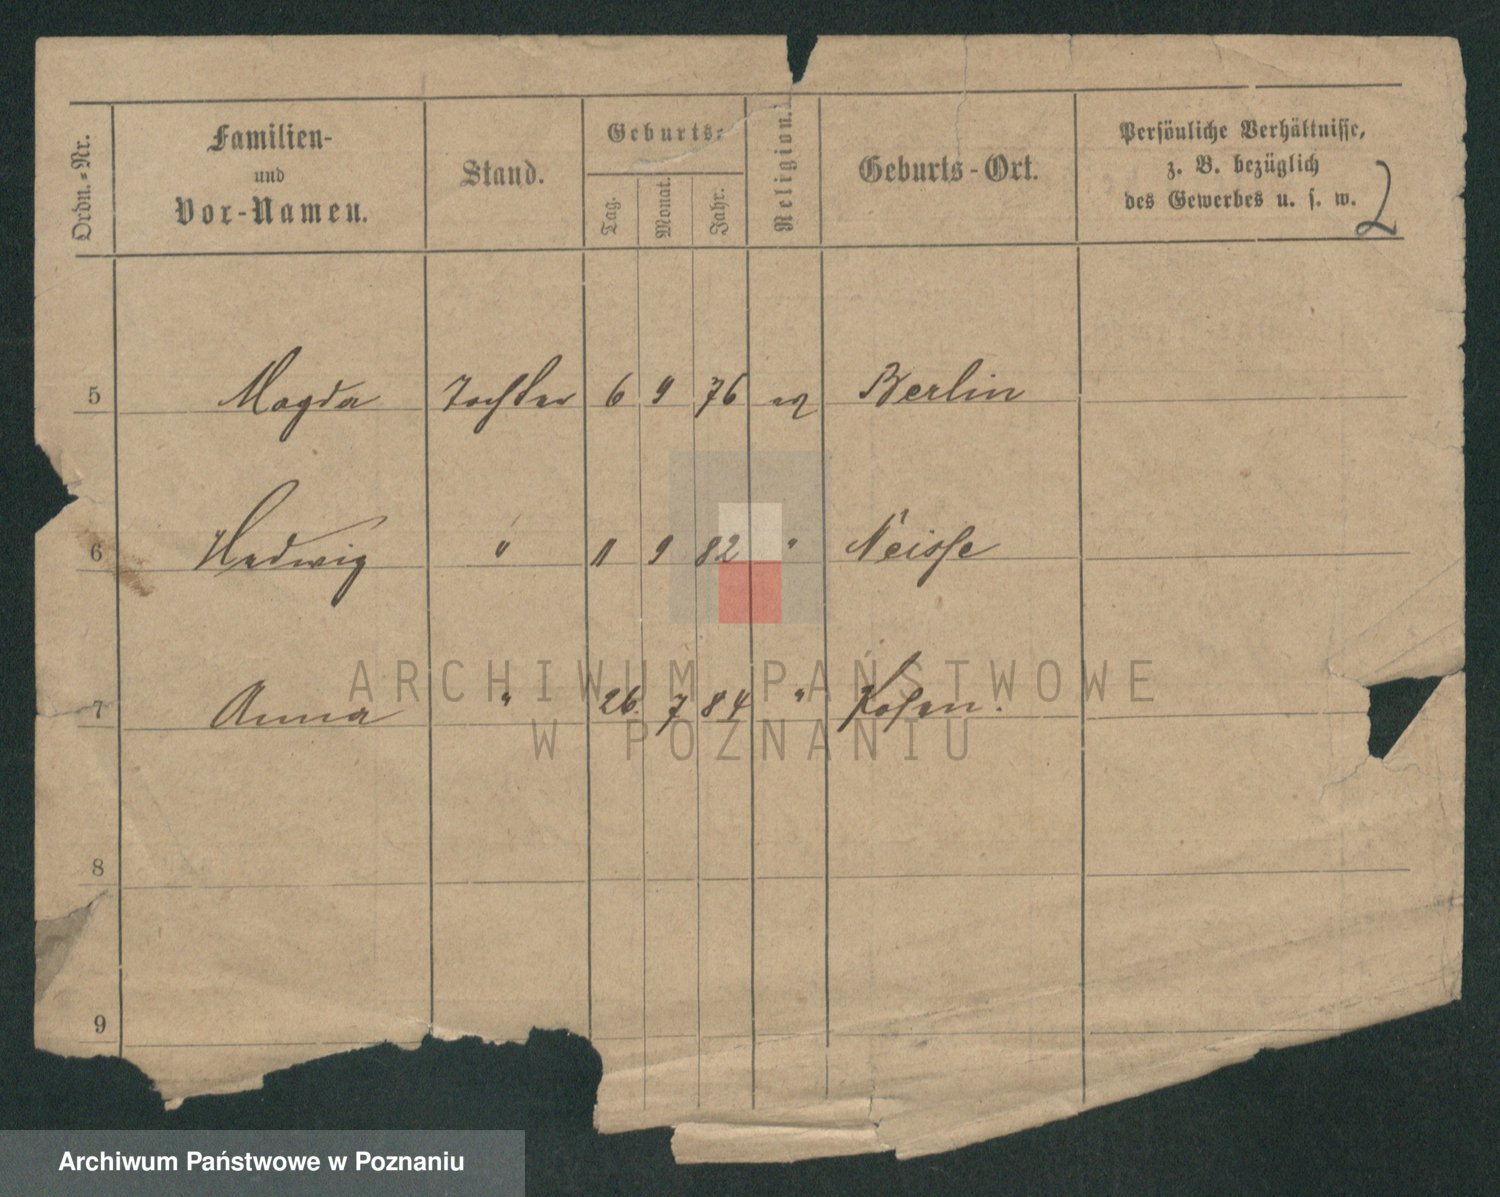 Ordn.-Nr.
Familien-
und
Vor-Namen.
Stand.
Geburts-
Tag.
Monat.
Jahr.
Religion.
Geburts-Ort.
Persönliche Verhältnisse,
z. B. bezüglich
des Gewerbes u. s. w.
2
5 Magda Tochter 6 9 76 ev Berlin
6 Hedwig " 11 9 82 " Neisse
7 Anna " 26 7 84 " Posen.
8
9
ARCHIWUM PAŃSTWOWE
W POZNANIU
Archiwum Państwowe w Poznaniu